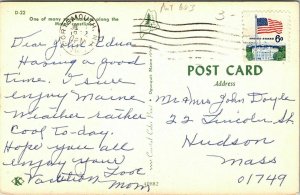 D-22
One of many along the
Maine
PORTSMOUTH
6c
POST CARD
Address
Dear John & Edna
Having a good
time. I sure
enjoy Maine
Weather rather
Cool to-day.
Hope you all
enjoy your
Vacation Love
Mom
Mr & Mrs John Doyle
22 Lincoln St
Hudson
Mass
01749
K